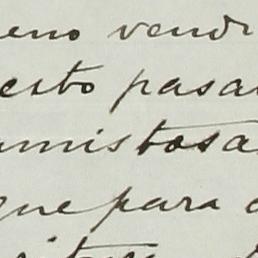 eno vendr
esto pasar
amistosa
que para